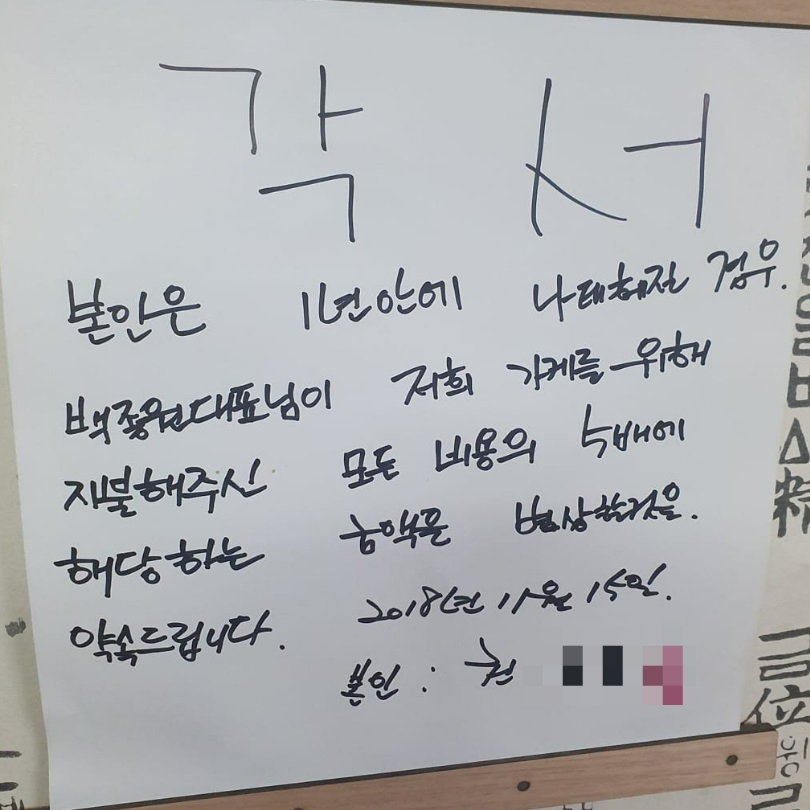 각 서
본인은 1년안에 나태해진 경우.
백종원대표님이 저희 가게를 위해
지불해주신 모든 비용의 5배에
해당하는 금액을 변상할것을.
약속드립니다. 2018년 11월 15일.
본인 : 권